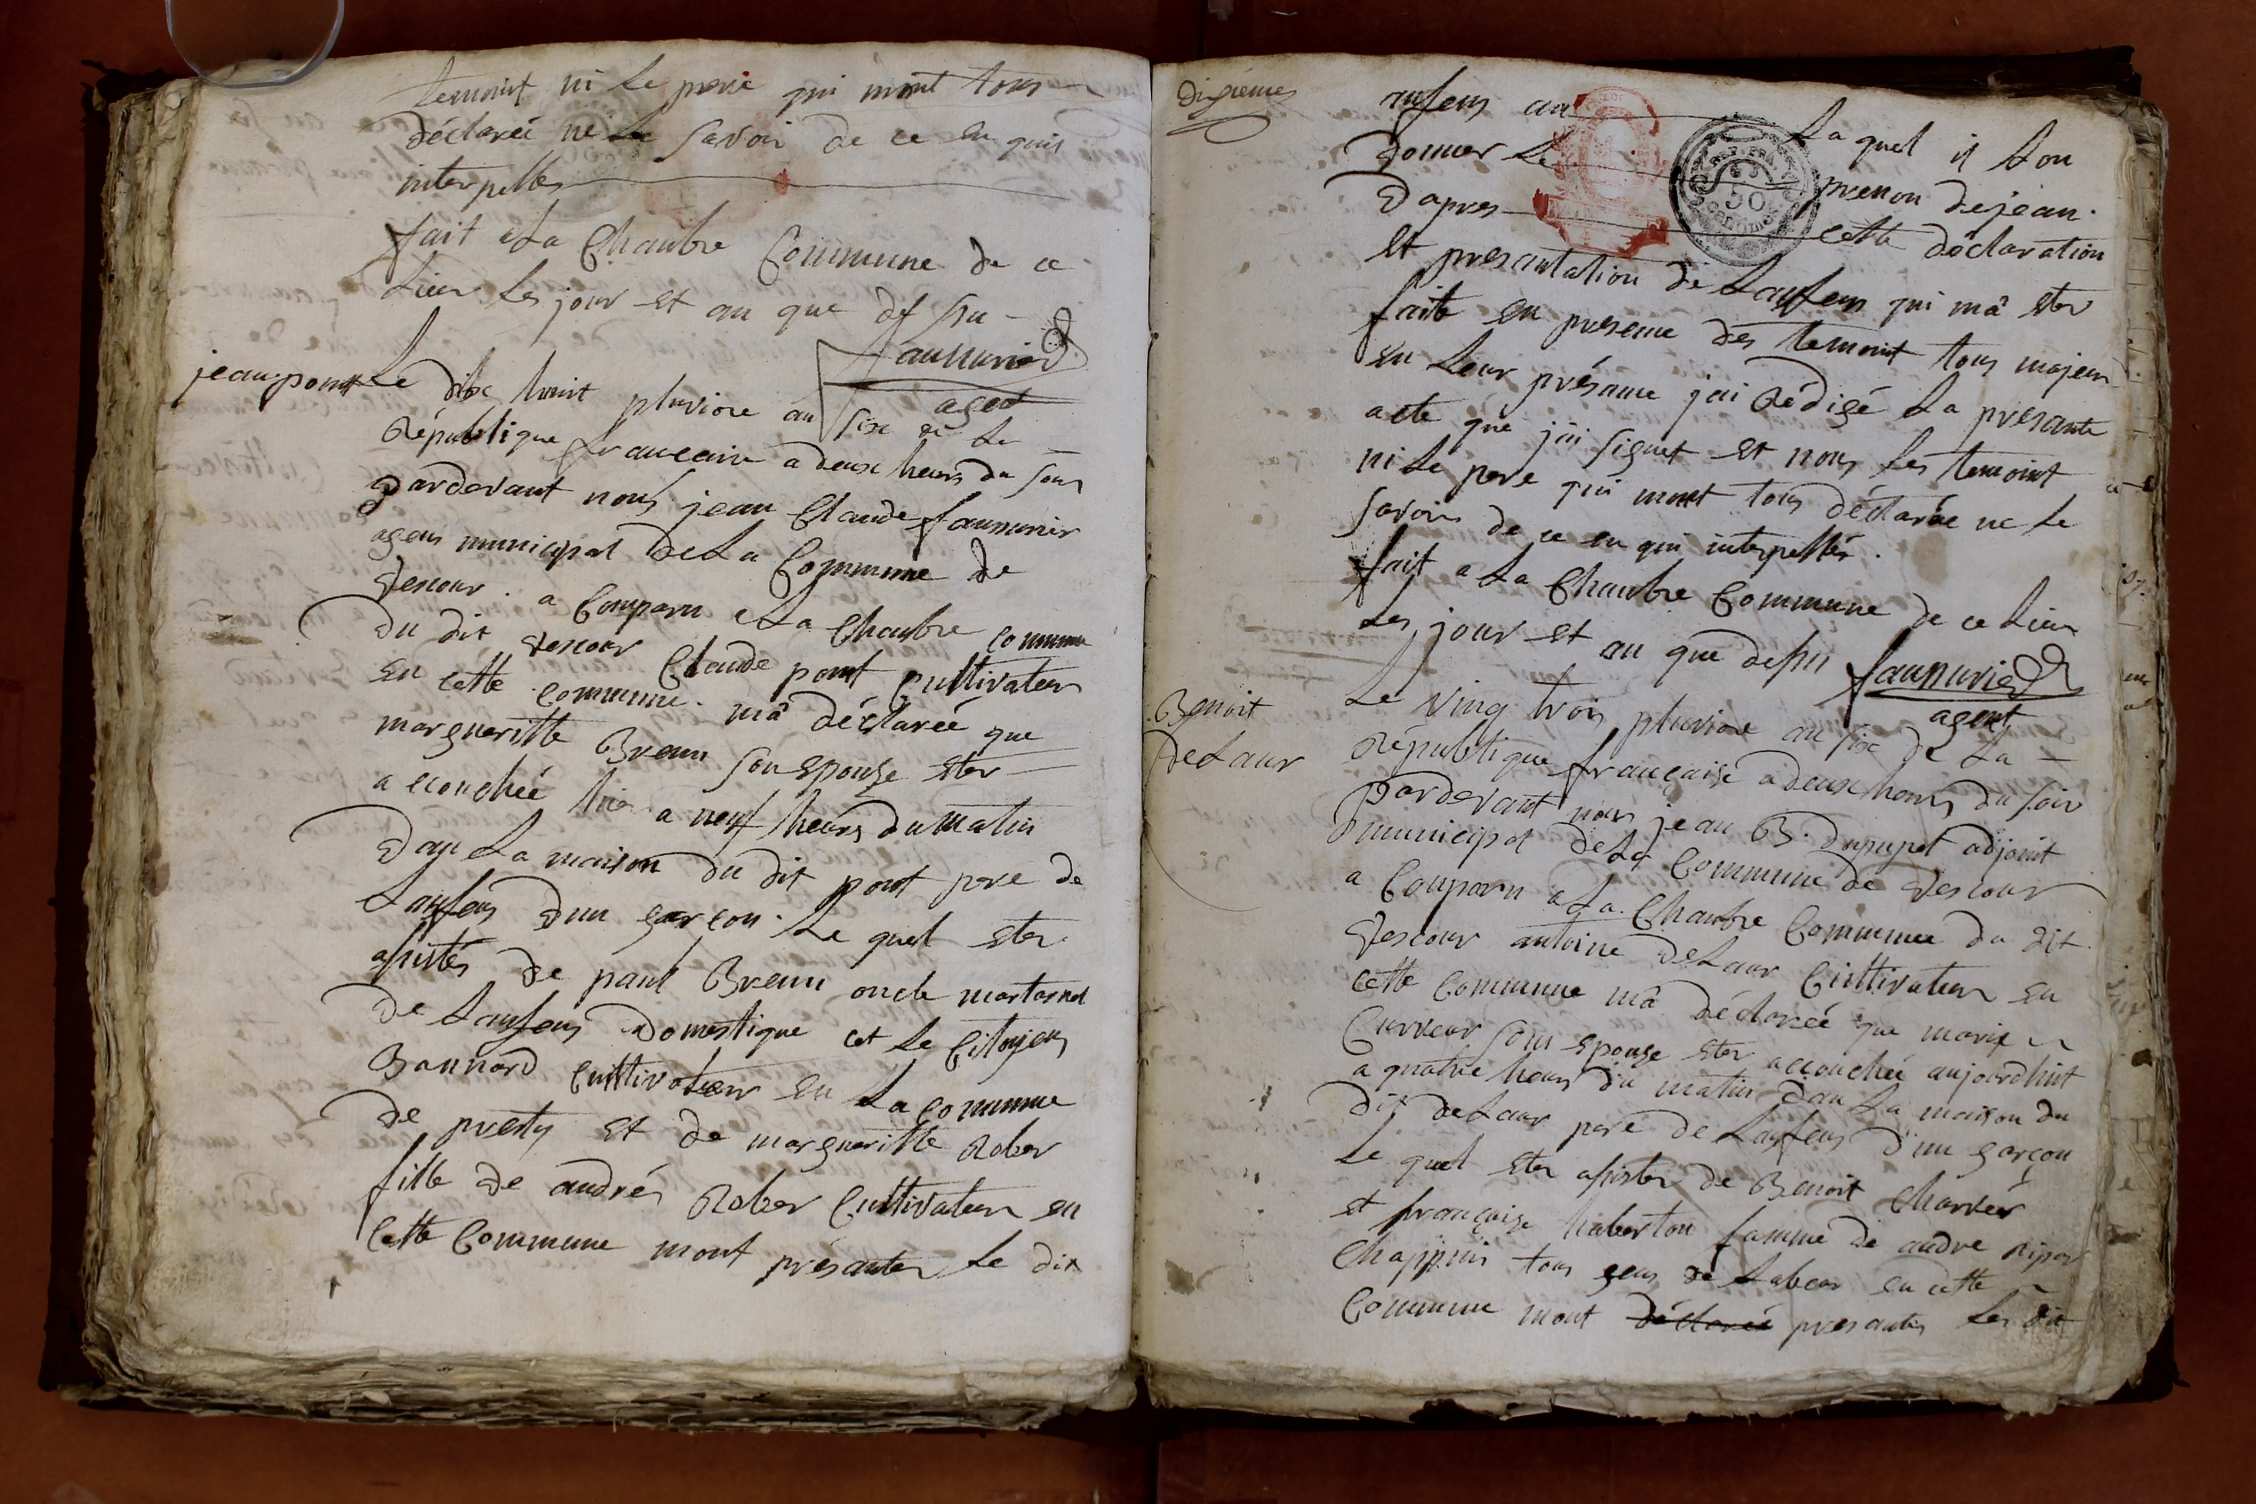 temoint ni Le pere qui mont tous
déclareé ne Le Savoir de ce en quis
interpelles
fait a La Chambre Commune de ce
Lieu Les jour et an que desu
faussurier
agent
jean pont
Le dixe huit pluviose an six de La
République francaise a deux heurs du soir
Pardevant nous jean Claude faussurier
agens municipal de La Commune de
Vescour. a Comparu a La Chambre commune
Du dit Vescour Claude pont Cultivateur
en cette commune. ma déclareé que
margueritte Breun son epouse eter
a ccouchée hier a neuf heurs du matin
Dan La maison du dit pont pere de
Lanfens dun garcon. Le quel eter
assistés de paul Breun oncle martarnel
de Lanfens domestique et Le Citoyens
Bannard Cultivateur en La commune
De presty et de margueritte Rober
fille de andrés Rober Cultivateur en
Cette Commune mont présanter Le dit
dixieme
anfens au La quel il Lon
Donner Le prenon de jean.
Dapres cette déclaration
et presantation de Lanfens qui ma eter
faite en presence des temoint tous majeur
en Leur présance jai Rédigé La presante
acte que jai signet et nons Les temoint
ni Le pere qui mont tous déclarée ne Le
savoir de ce en qui interpellés.
fait a La Chambre Commune de ce Lieu
Les jour et an que desu
faussurier
agent
Benoit
DeLaur
Le Ving trois pluviose an six de La
République francaise a deux heurs du soir
Pardevant nous jean B. Dupupet adjoint
municipal de La Commune de Vescour
a Comparu a La Chambre Commune du dit
Vescour antoine DeLaur Cultivateur en
cette Commune ma déclareé que marix
Curveur son epouse eter accouchée aujourdhuit
a quatre heurs du matin dan La maison du
dit deLaur pere de Lanfens d'un garcon
Le quel eter assister de Benoit Charvér
et francoise haberton famme de andre Ripar
Chappuis tous gens de Labeur en cette
Commune mont déclareé presantes Les dit
REP. FRA.
50
CENTIMES